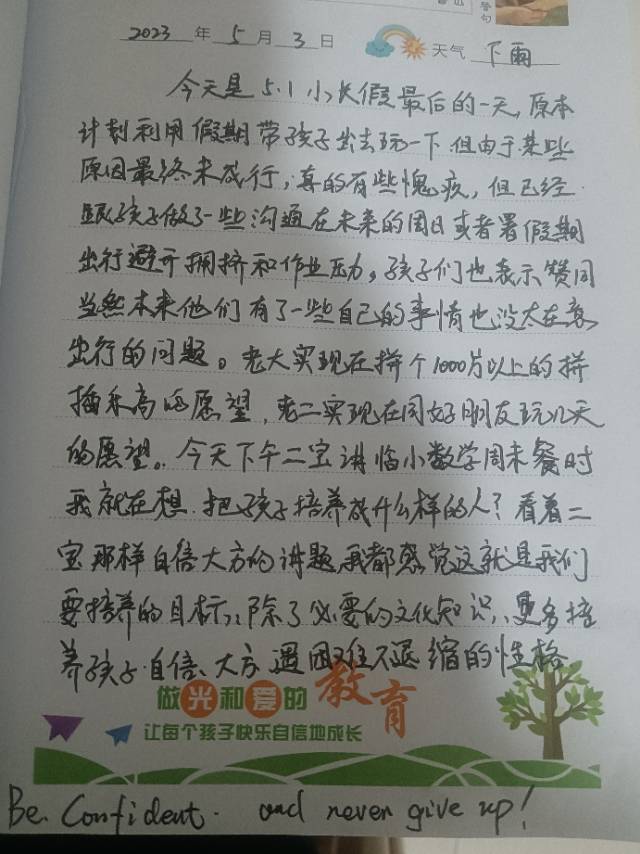 警句
2023 年 5 月 3 日 天气 下雨
今天是 5.1 小长假最后的一天,原本
计划利用假期带孩子出去玩一下但由于某些
原因最终未成行,真的有些愧疚,但已经
跟孩子做了一些沟通在未来的周日或者署假期
出行避开拥挤和作业压力。孩子们也表示赞同
当然本来他们有了一些自己的事情也没太在意
出行的问题。老大实现在拼个1000片以上的拼
插乐高的愿望,老二实现在同好朋友玩几天
的愿望。今天下午二宝讲临小数学周末餐时
我就在想.把孩子培养成什么样的人?看着二
宝那样自信大方的讲题,我都感觉这就是我们
要培养的目标,除了必要的文化知识、更多培
养孩子自信、大方 遇困难不退缩的性格
做光和爱的教育
让每个孩子快乐自信地成长
Be. Confident. and never give up!